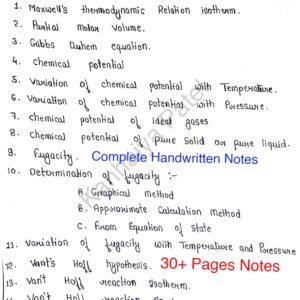 1. Maxwell's thermodynamic Relation isotherm.
2. Partial molar volume.
3. Gibbs Duhem equation.
4. chemical potential
5. Variation of chemical potential with Temperature.
6. Variation of chemical potential with Pressure.
7. chemical potential of ideal gases
8. Chemical potential of pure solid or pure liquid.
9. fugacity. Complete Handwritten Notes
10. Determination of fugacity :-
A. Graphical method
B. Approximate Calculation Method
C. From Equation of State
11. Variation of fugacity with Temperature and Pressure
12. Vant's Hoff hypothesis. 30+ Pages Notes
13. Van't Hoff reaction Isotherm.
Van't Hoff reaction
Kanhaiya Patel